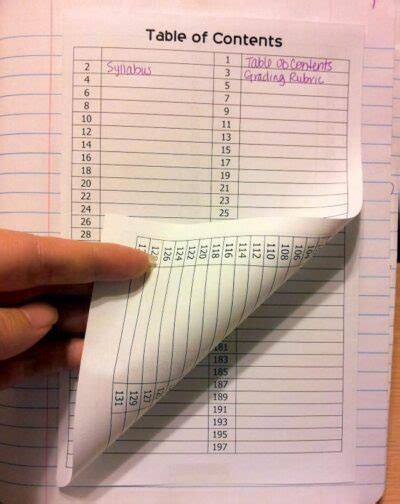 Table of Contents
1 Table of Contents
2 Syllabus 3 Grading Rubric
4 5
6 7
8 9
10 11
12 13
14 15
16 17
18 19
20 21
22 23
24 25
26
28
126 124 122 120 118 116 114 112 110 108 106
131 129 127
181
183
185
187
189
191
193
195
197